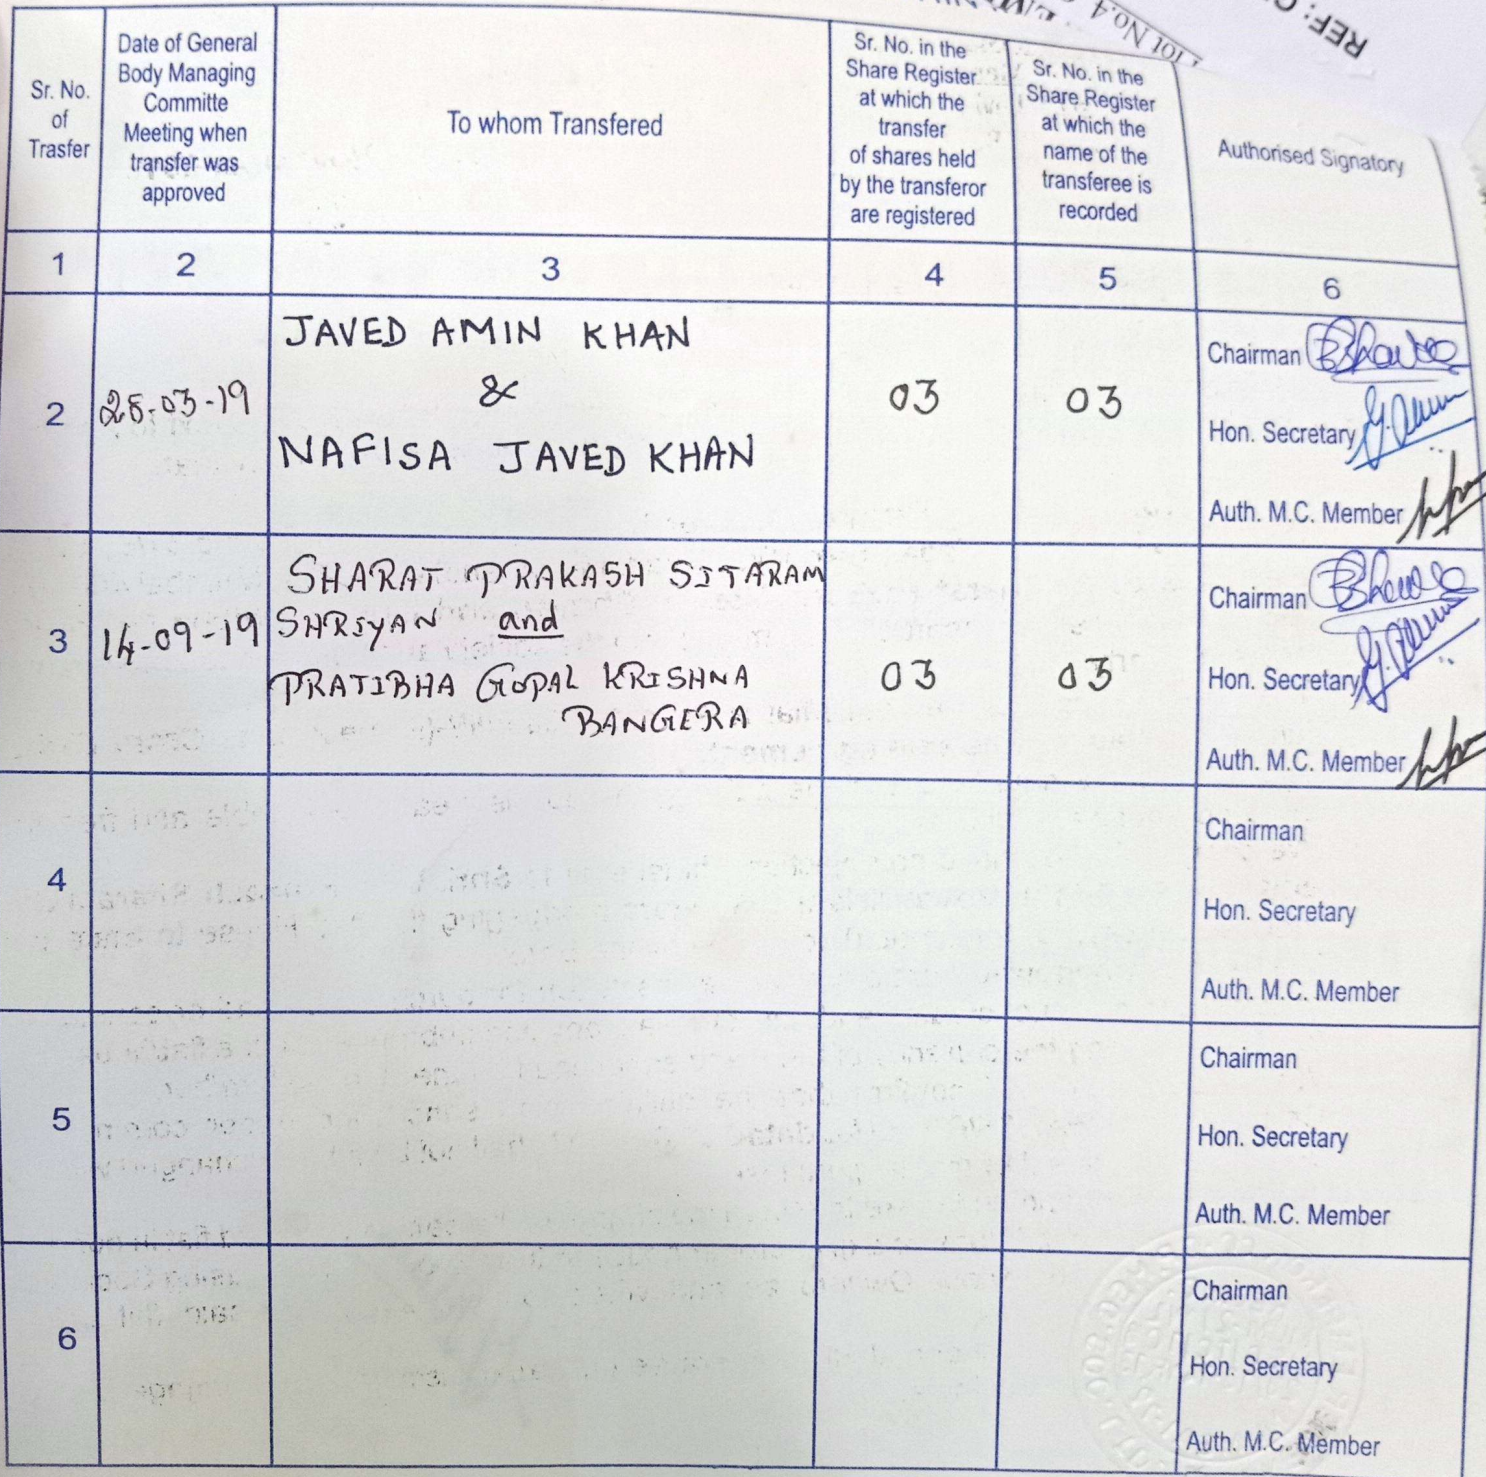 REF:
Plot No.4
Sr. No.
of
Trasfer
Date of General
Body Managing
Committe
Meeting when
transfer was
approved
To whom Transfered
Sr. No. in the
Share Register
at which the
transfer
of shares held
by the transferor
are registered
Sr. No. in the
Share Register
at which the
name of the
transferee is
recorded
Authorised Signatory
1
2
3
4
5
6
2
-03-19
JAVED AMIN KHAN
&
NAFISA JAVED KHAN
03
03
Chairman
Hon. Secretary
Auth. M.C. Member
3
14-09-19
SHARAT PRAKASH SITARAM
SHRIYAN and
PRATIBHA GOPAL KRISHNA
BANGERA
03
03
Chairman
Hon. Secretary
Auth. M.C. Member
4
Chairman
Hon. Secretary
Auth. M.C. Member
5
Chairman
Hon. Secretary
Auth. M.C. Member
6
Chairman
Hon. Secretary
Auth. M.C. Member